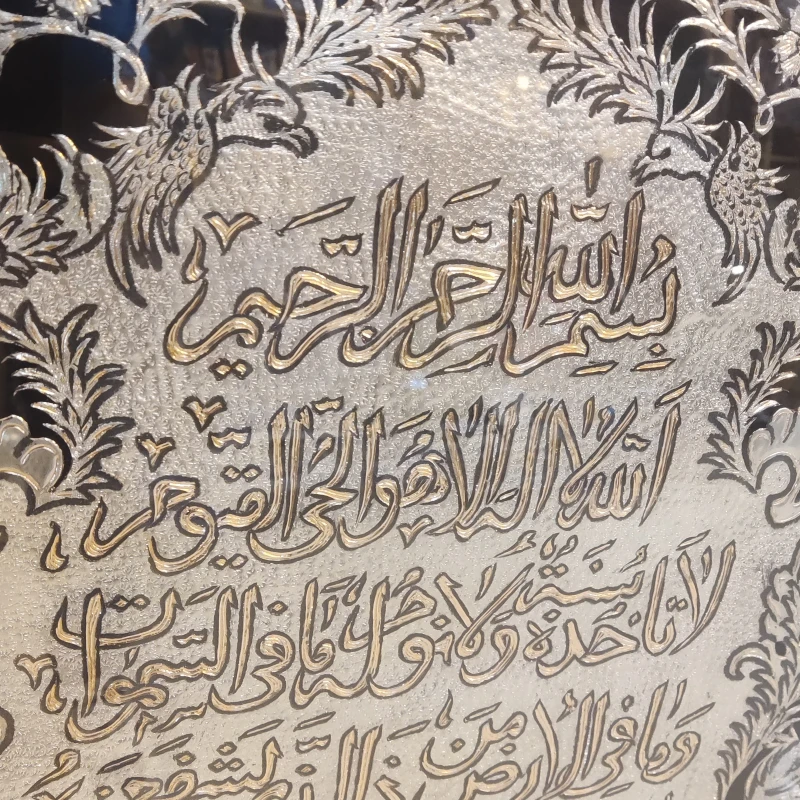 بسم الله الرحمن الرحيم
الله لا اله الا هو الحي القيوم
لا تاخذه سنة ولا نوم له ما في السموات
وما في الارض من ذا الذي يشفع